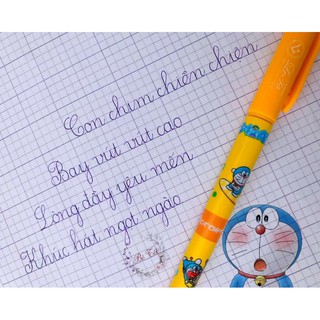 Con chim chiền chiện
Bay vút vút cao
Lòng đầy yêu mến
Khúc hát ngọt ngào